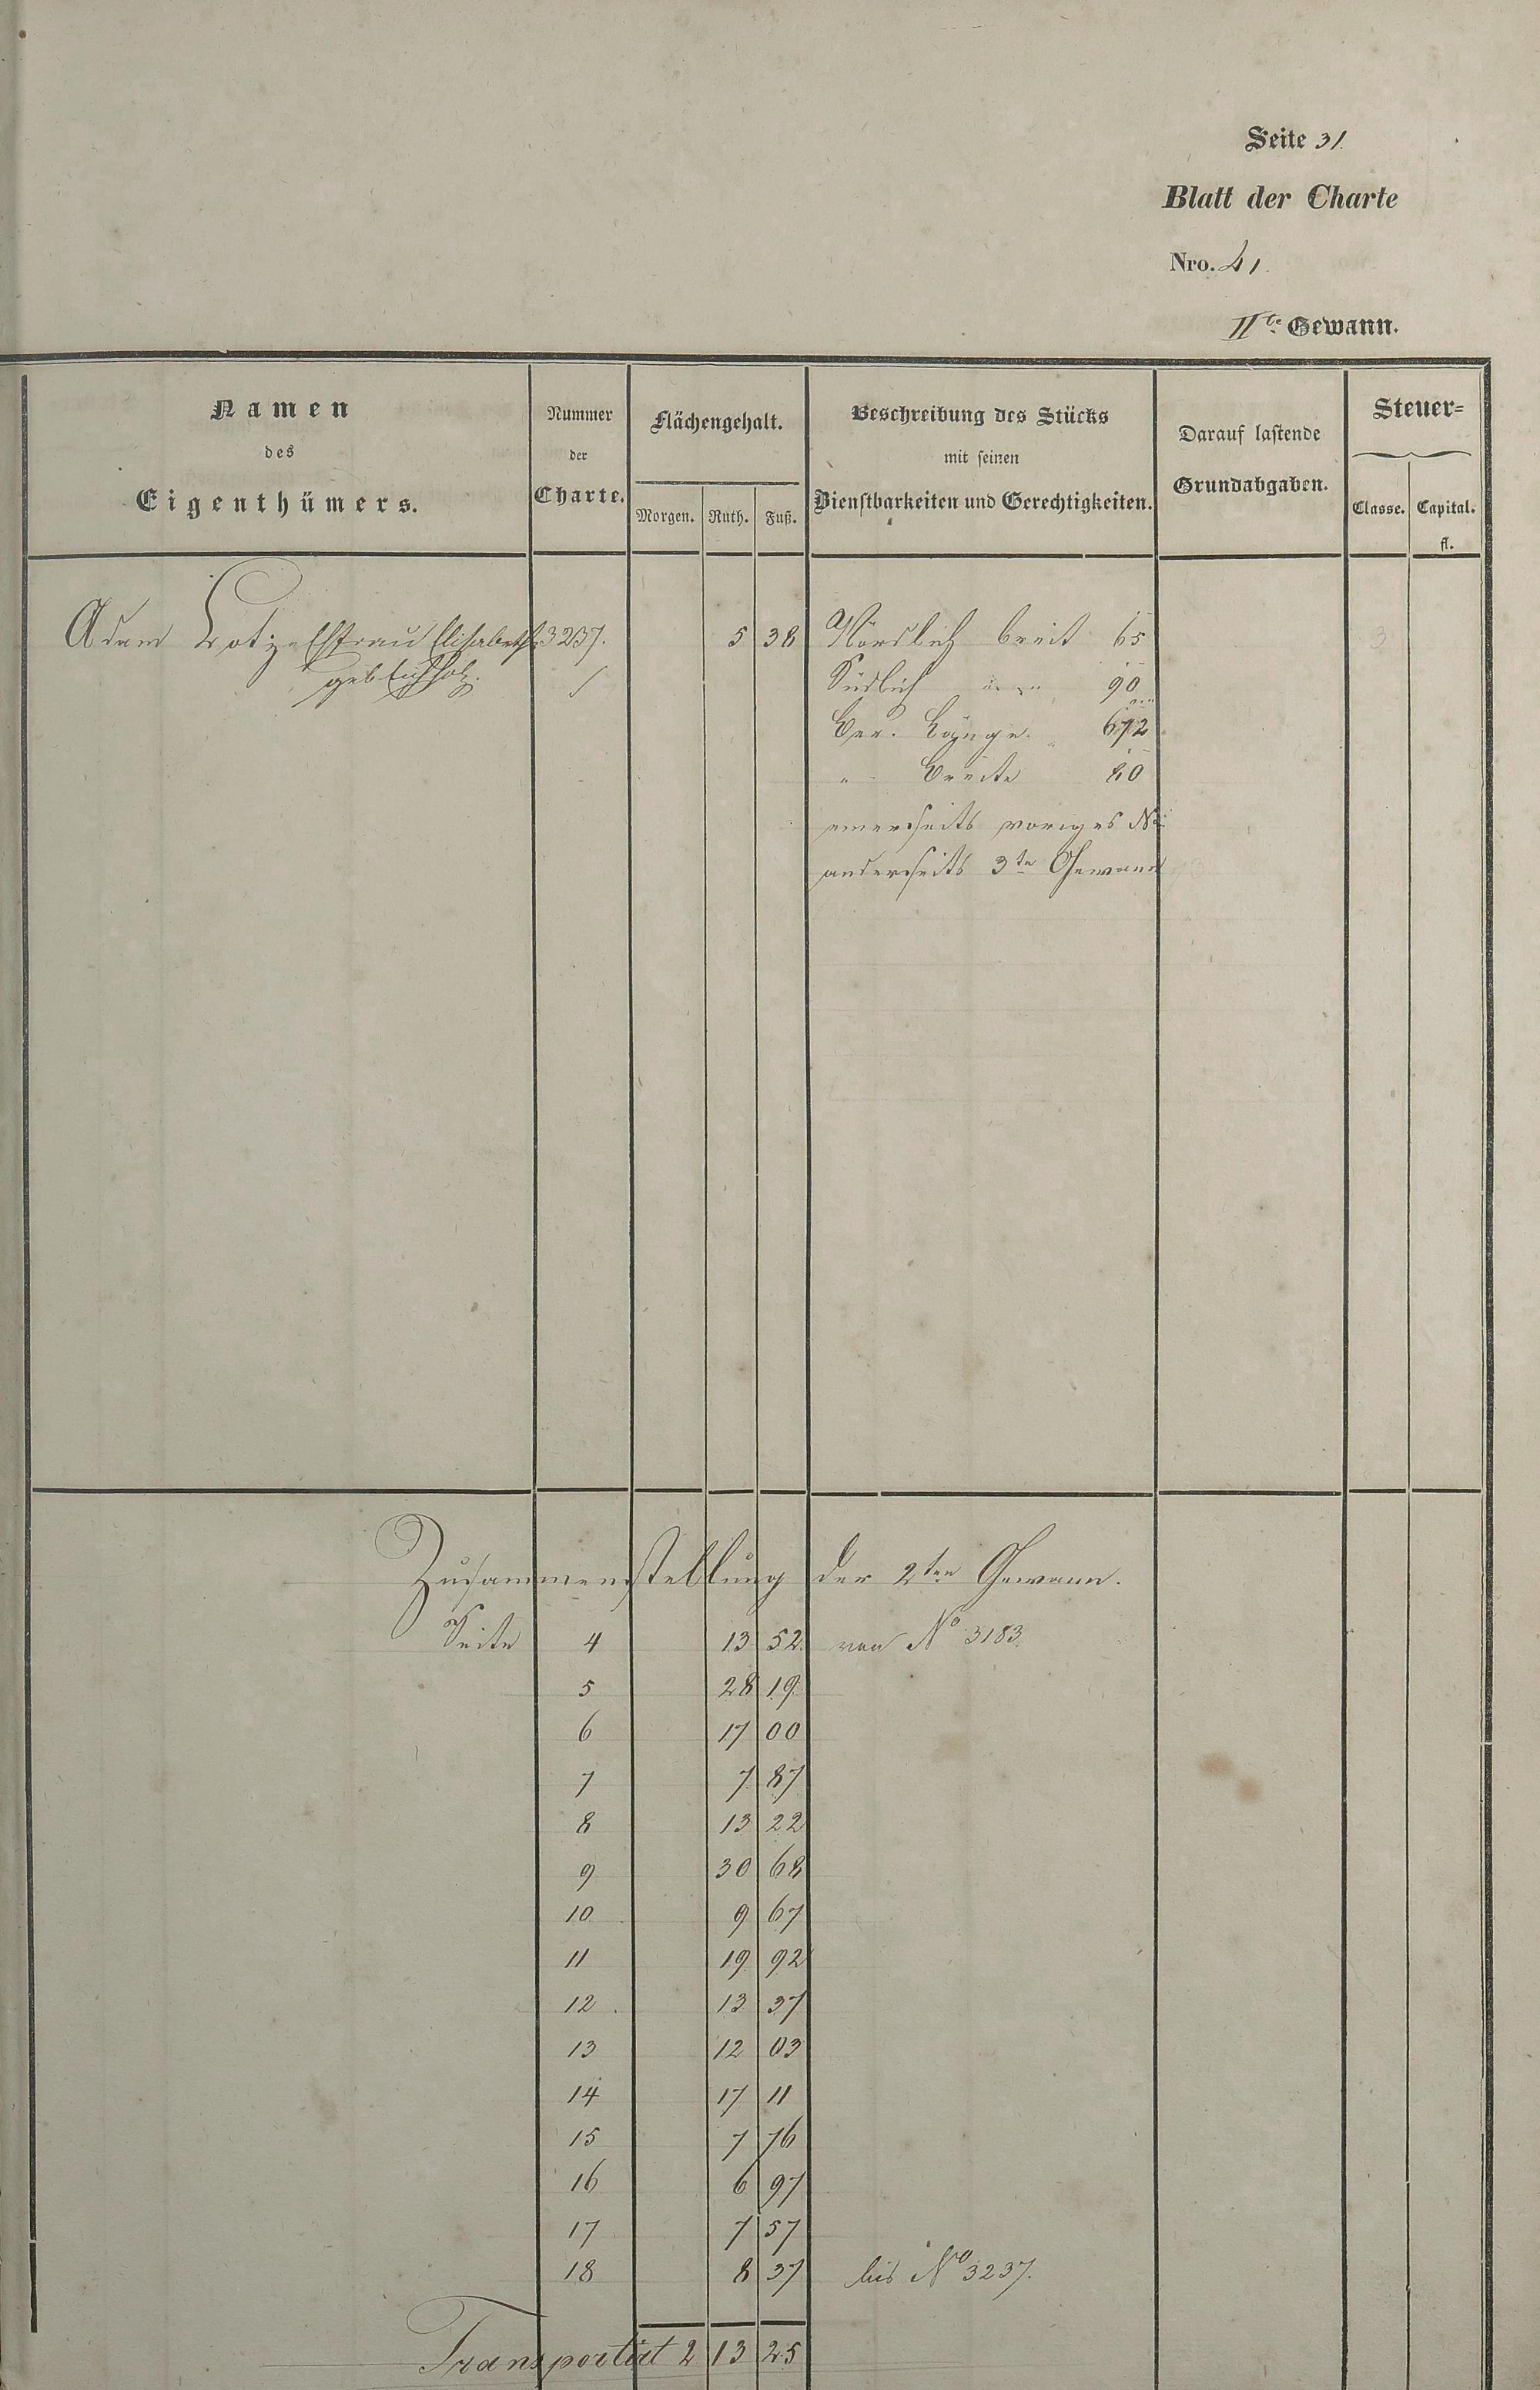 Seite 31.
Blatt der Charte
Nro. 41.
IIte Gewann.
Namen des Eigenthümers.
Nummer der Charte.
Flächengehalt.
Morgen. Ruth. Fuß.
Beschreibung des Stücks mit seinen Dienstbarkeiten und Gerechtigkeiten.
Darauf lastende Grundabgaben.
Steuer=
Classe. Capital.
fl.
Adam Lotz Ehfrau Elisabeth 3237. 5 38 Nördlich breit 65
geb Eichholz. Südlich 90
Ber. Länge 672
" Breite 80
einerseits voriges No
anderseits 3te Gewann
Zusammenstellung der 2ten Gewann.
Seite 4 13 52 von No 3183.
5 28 19
6 17 00
7 7 87
8 13 22
9 30 68
10 9 67
11 19 92
12 13 37
13 12 03
14 17 11
15 7 76
16 6 97
17 7 57
18 8 37 bis No 3237.
Transportirt 2 13 25